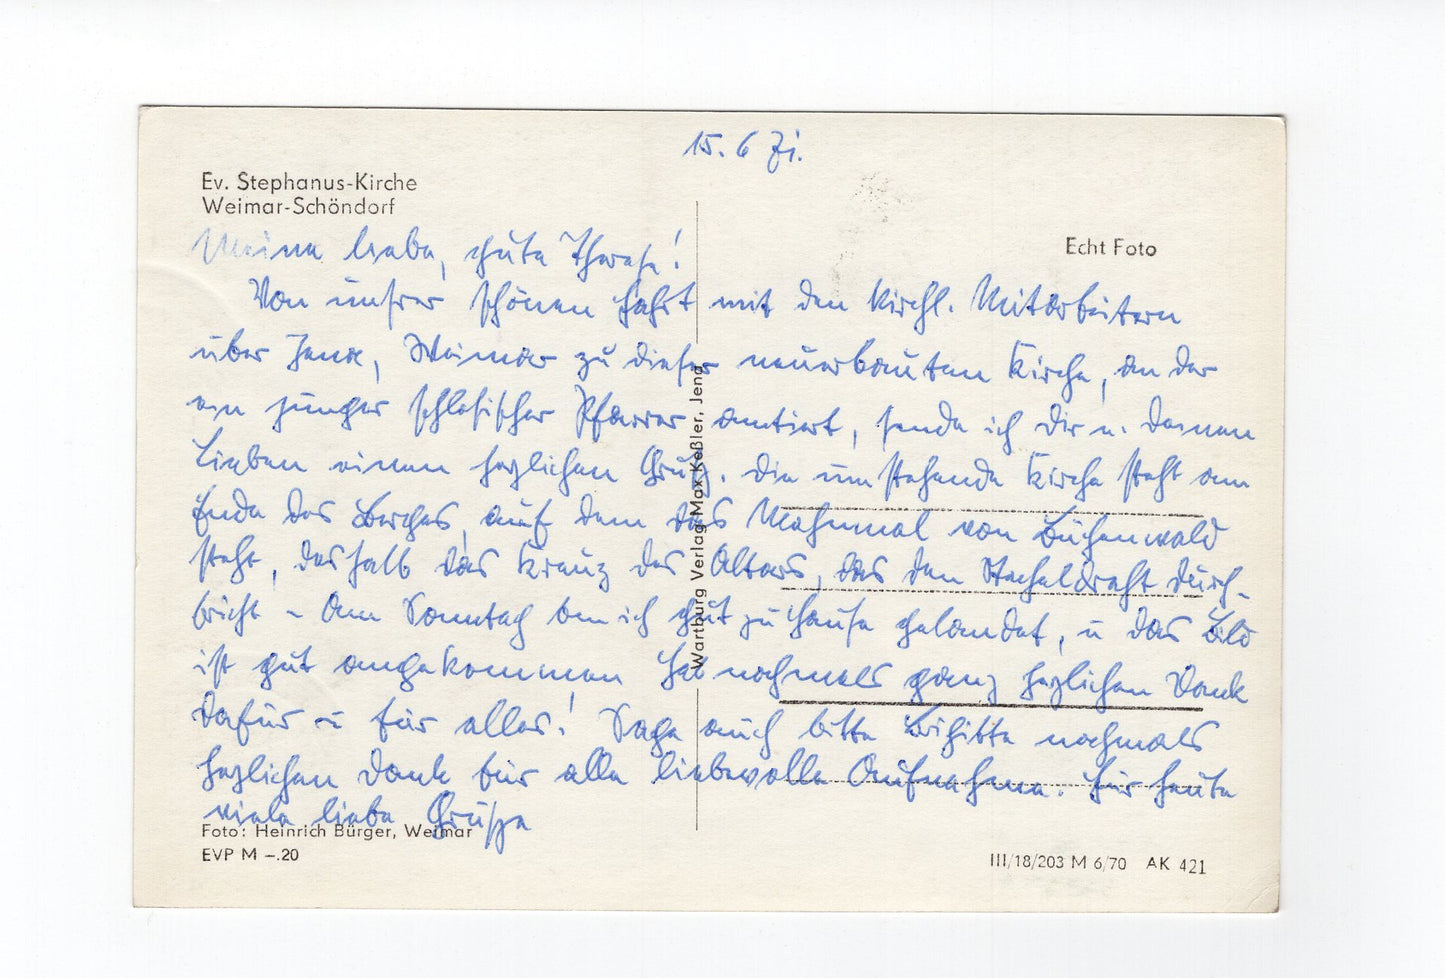 15. 6 71.
Ev. Stephanus-Kirche
Weimar-Schöndorf
Echt Foto
Meine liebe, gute Therese!
Von unsrer schönen Fahrt mit den kirchl. Mitarbeitern
über Jena, Weimar zu dieser neuerbauten Kirche, an der
ein junger schlesischer Pfarrer amtiert, sende ich Dir u. Deinen
Lieben einen herzlichen Gruß. Die umstehende Kirche steht am
Ende des Berges, auf dem das Mahnmal von Buchenwald
steht, deshalb das Kreuz des Altars, das den Stacheldraht durch-
bricht – Am Sonntag bin ich gut zu Hause gelandet, u das Bild
ist gut angekommen Hab nochmals ganz herzlichen Dank
dafür u für alles! Sage auch bitte Brigitte nochmals
herzlichen Dank für alle liebevolle Aufnahme. Für heute
viele liebe Grüße
Wartburg Verlag Max Keßler, Jena
Foto: Heinrich Bürger, Weimar
EVP M –.20
III/18/203 M 6/70 AK 421